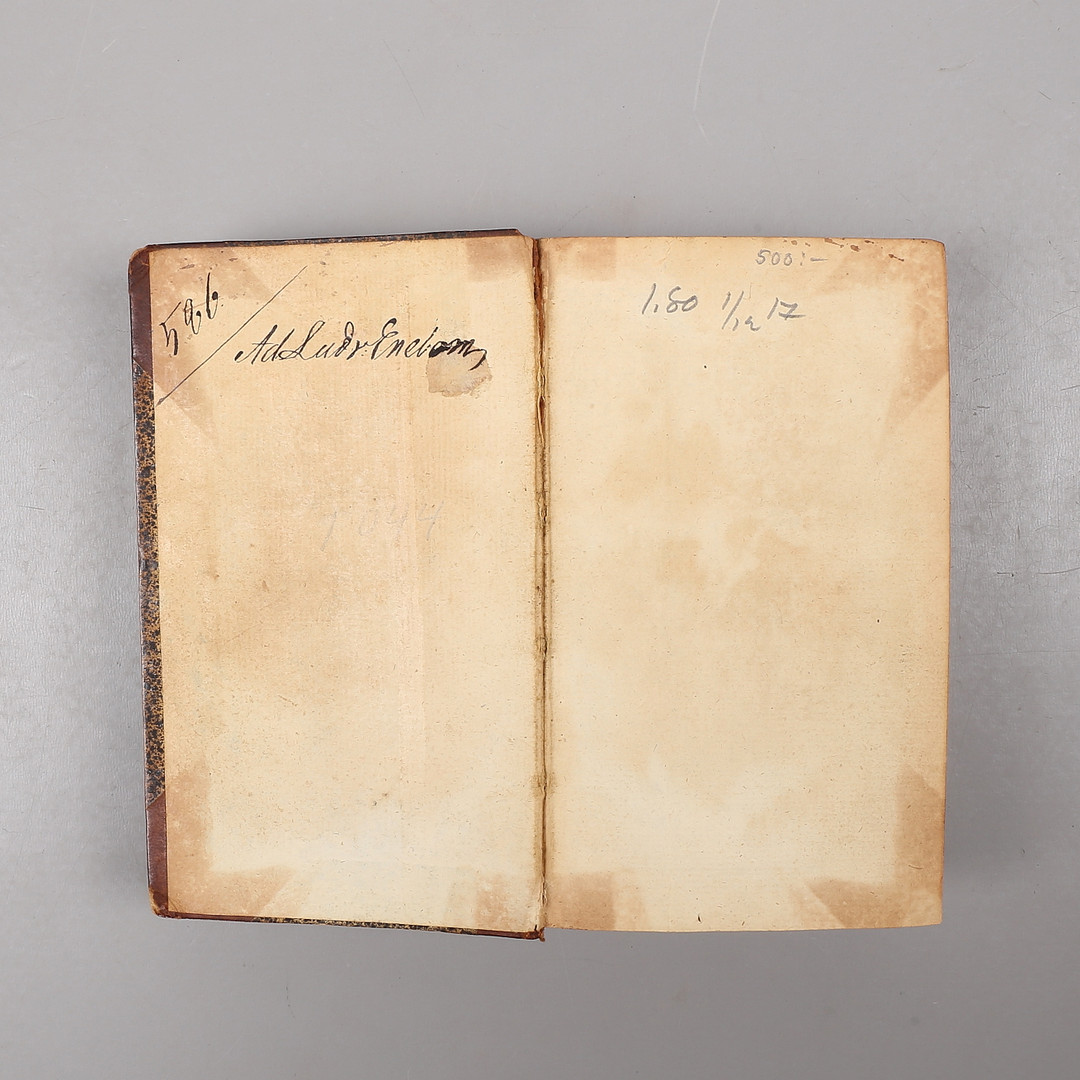 586
Ad Ludv: Enebom,
500:-
1,80 1/12 17